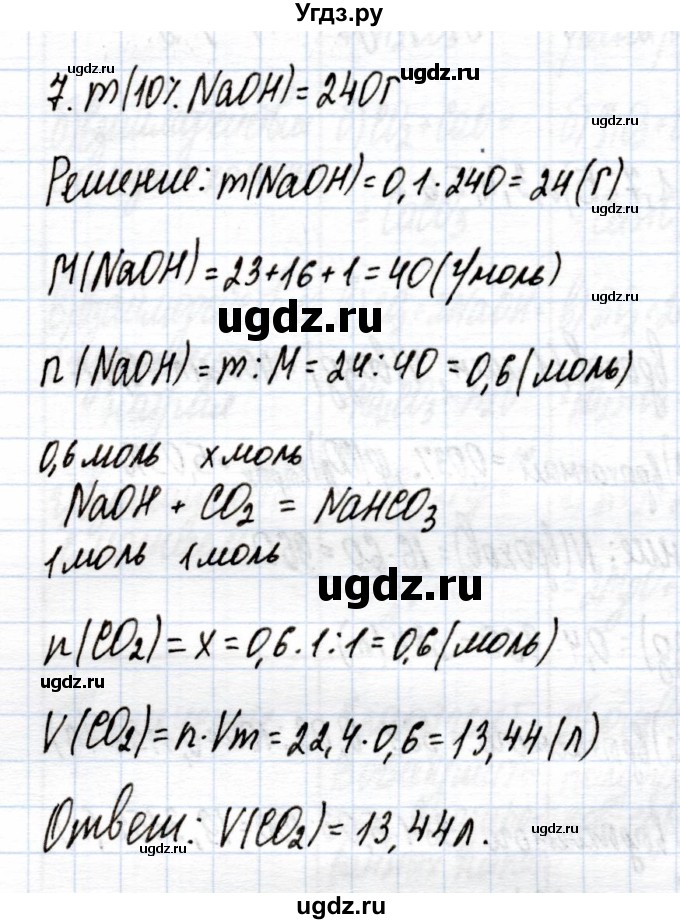 Угдз.ру
7. m(10% NaOH) = 240г
ugdz.ru ugdz.ru
ugdz.ru
Решение: m(NaOH) = 0,1 · 240 = 24 (г)
M(NaOH) = 23 + 16 + 1 = 40 (г/моль)
ugdz.ru
n (NaOH) = m : M = 24 : 40 = 0,6 (моль)
0,6 моль x моль
NaOH + CO₂ = NaHCO₃
1 моль 1 моль
ugdz.ru
n(CO₂) = x = 0,6 · 1 : 1 = 0,6 (моль)
ugdz.ru
ugdz.ru
V(CO₂) = n · Vm = 22,4 · 0,6 = 13,44 (л)
Ответ: V(CO₂) = 13,44 л.
ugdz.ru
ugdz.ru